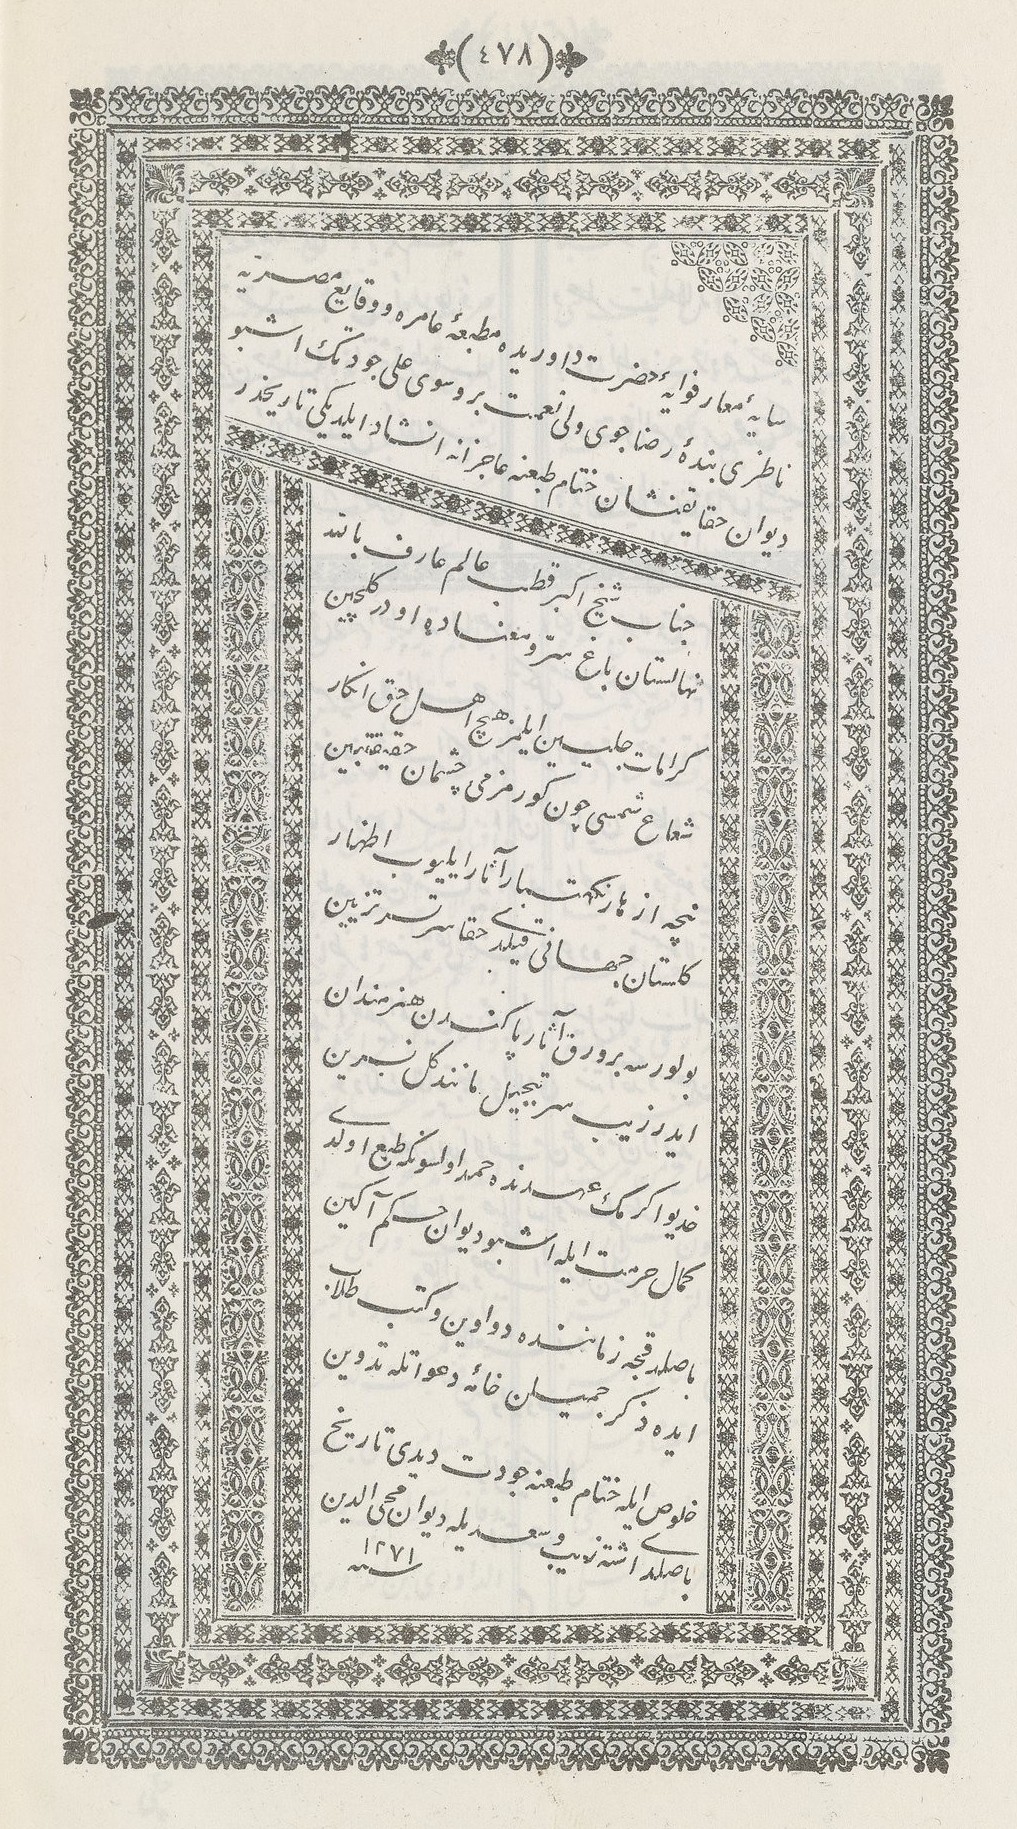 (٤٧٨)
سایۀ معارفوایۀ حضرت داوریده مطبعۀ عامره و وقایع مصریه
ناظری بندۀ رضاجوی ولی نعمت بروسوی علی جودتک اشبو
دیوان حقایقنشان ختام طبعنه عاجزانه انشاد ایلدیکی تاریخدر
جناب شیخ اکبر قطب عالم عارف بالله
نهالستان باغ سر و معناده اودر کلچین
کرامات جلیسین ایلمز هیچ اهل حق انکار
شعاع شمسی چون کورمزمی چشمان حقیقتبین
نیجه از هار نکهتبار آثار ایلیوب اظهار
کلستان جهانی قیلدی حقا سرتسر تزیین
بولورسه بر ورق آثار پاکندن هنرمندان
ایدر زیب سر تبجیل مانند کل نسرین
خدیو اکرمک عهدنده حمد اولسونکه طبع اولدی
کمال حرمت ایله اشبو دیوان حکم آکین
باصلدقجه زماننده دواوین و کتب طلاب
ایده ذکر جمیلن خامۀ دعواتله تدوین
خلوص ایله ختام طبعنه جودت دیدی تاریخ
باصلدی اشته زیب و سعدیله دیوان محیی الدین
سنه ١٢٧١